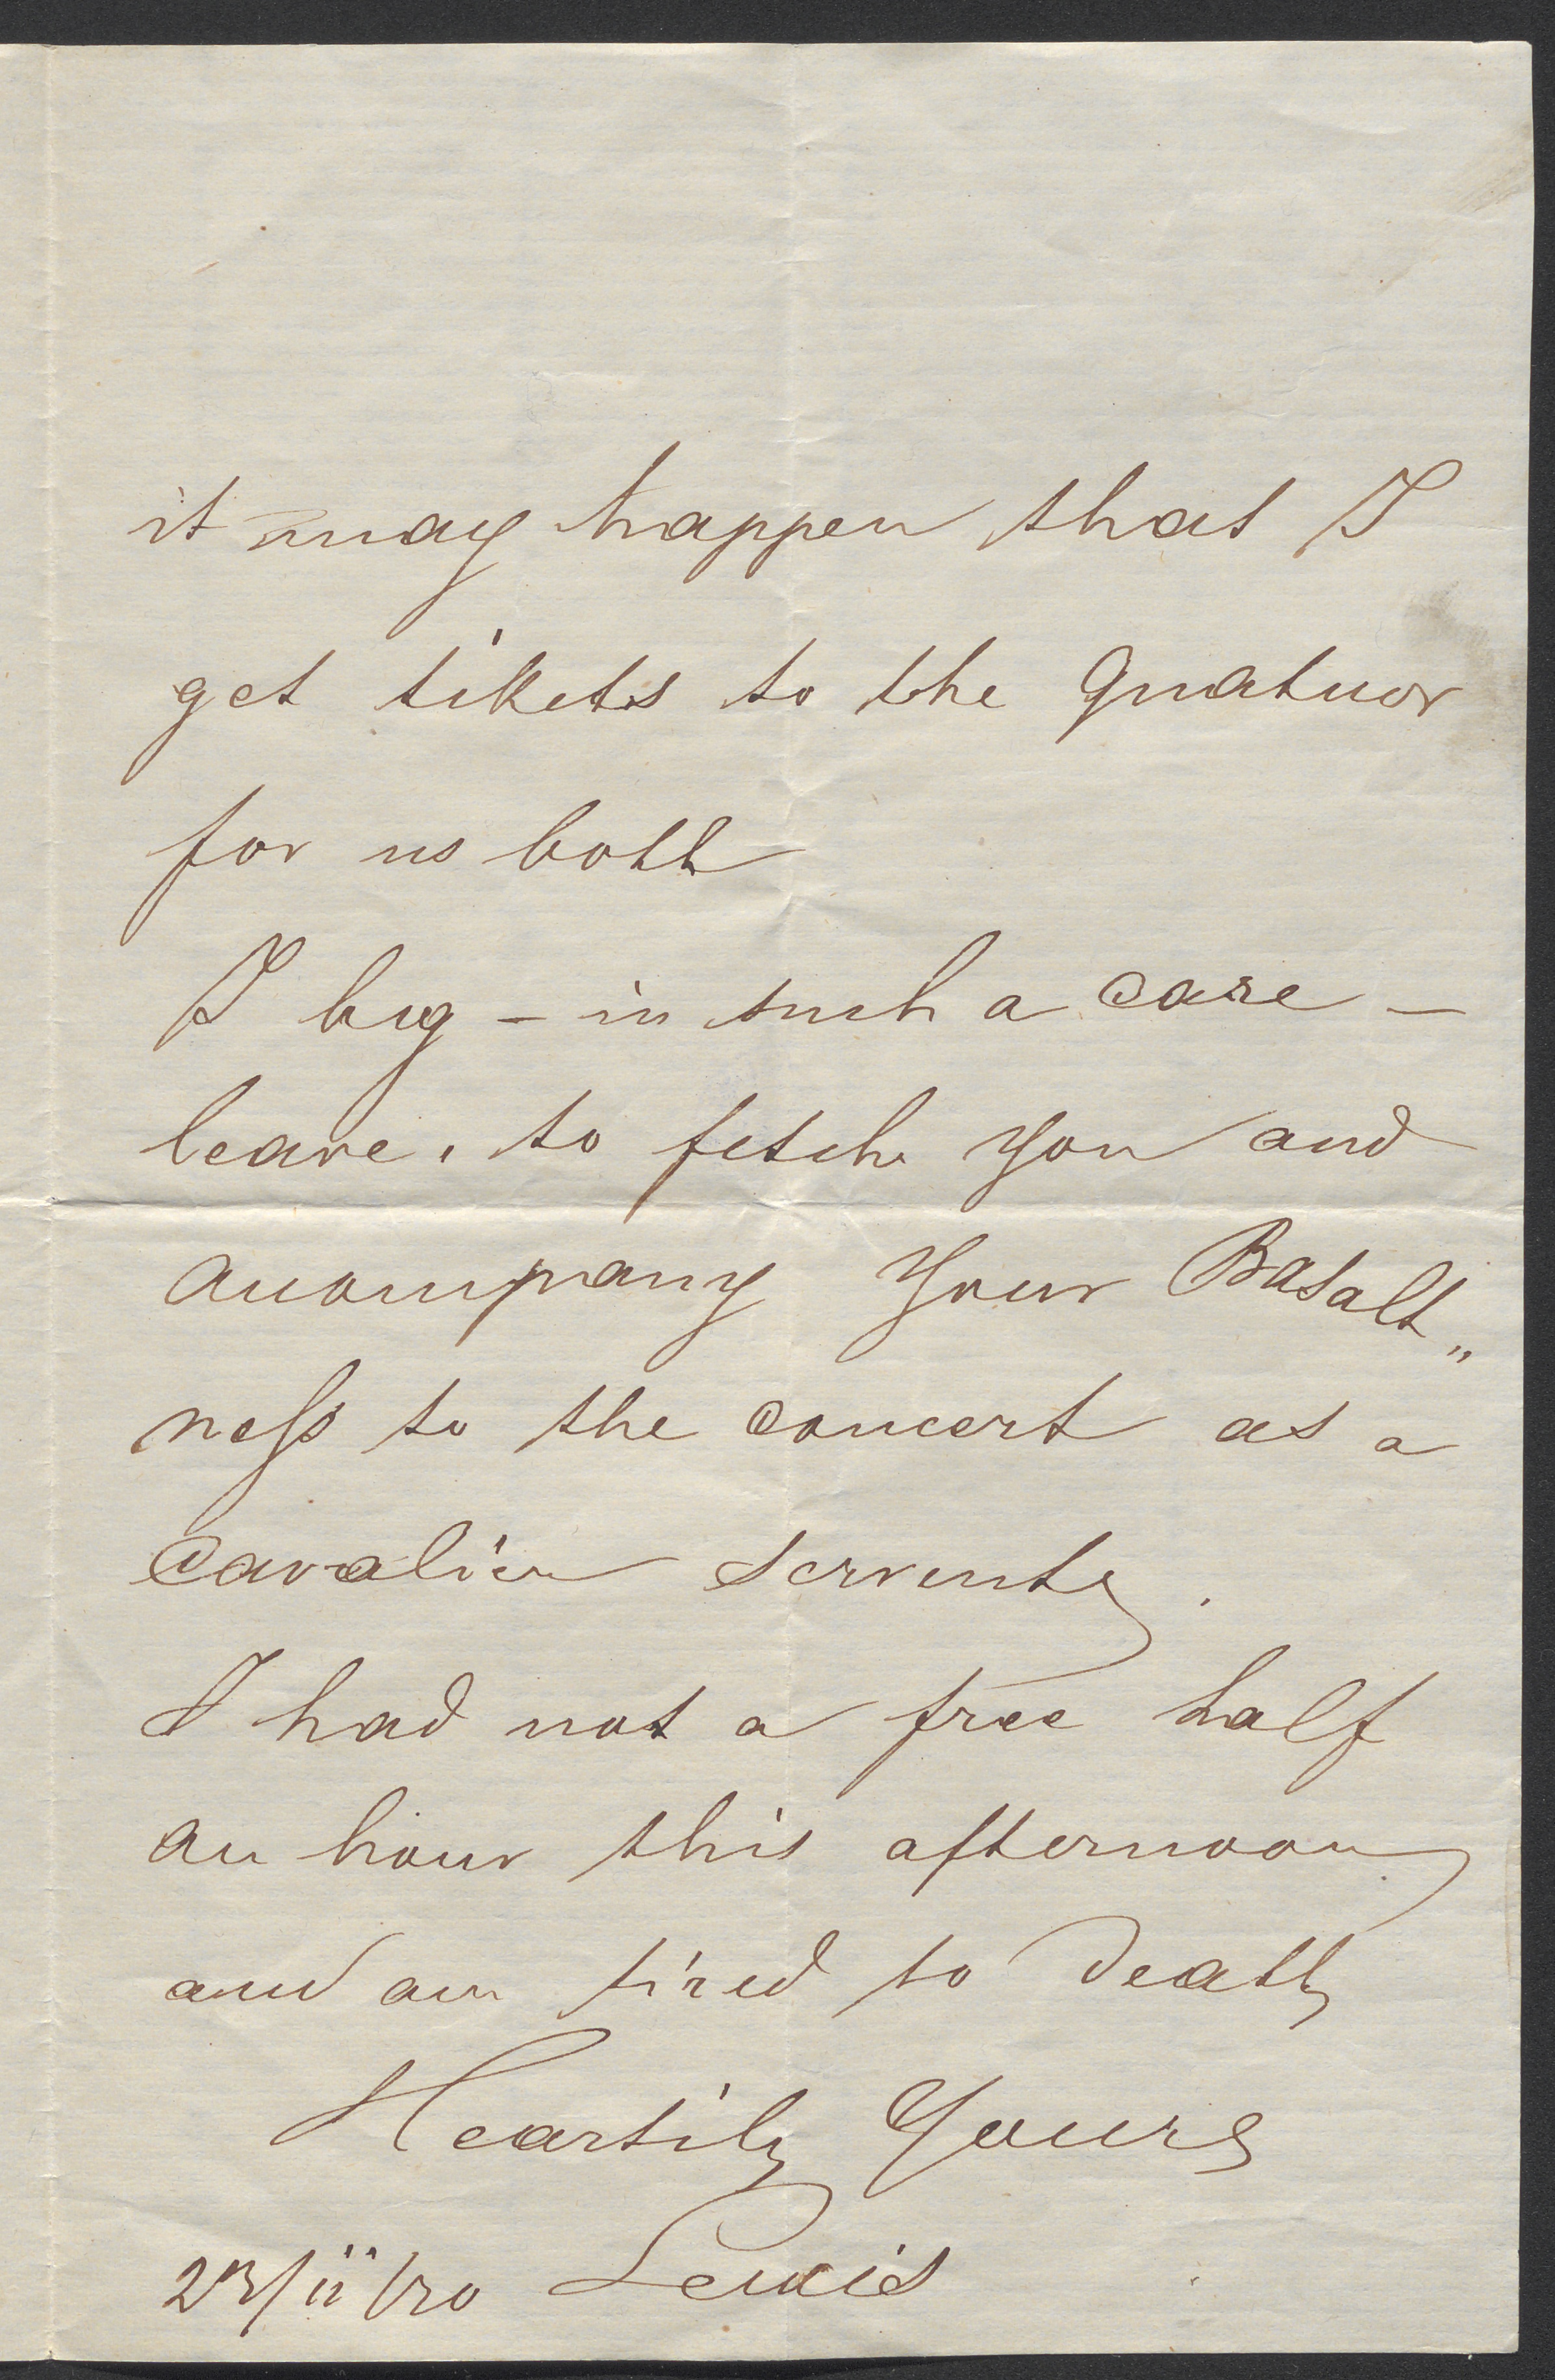 it may happen that I
get tikets to the Quatuor
for us both
I beg – in such a case –
leave, to fetch you and
accompany Your Basalt„
ness to the concert as a
cavalier servente.
I had not a free half
an hour this afternoon
and am tired to death
Heartily Yours
Lewis